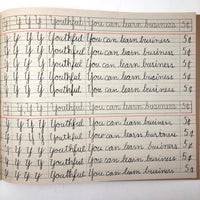 y y y y Youthful You can learn business 5¢
y y y y Youthful You can learn business 5¢
y y y y Youthful You can learn business 5¢
y y y y Youthful You can learn business 5¢
y y y y Youthful You can learn business 5¢
y y y y Youthful You can learn business 5¢
y y y y Youthful You can learn business 5¢
y y y y Youthful You can learn business 5¢
y y y y Youthful You can learn business 5¢
y y y y Youthful You can learn business 5¢
y y y y Youthful You can learn business 5¢
y y y y Youthful You can learn business 5¢